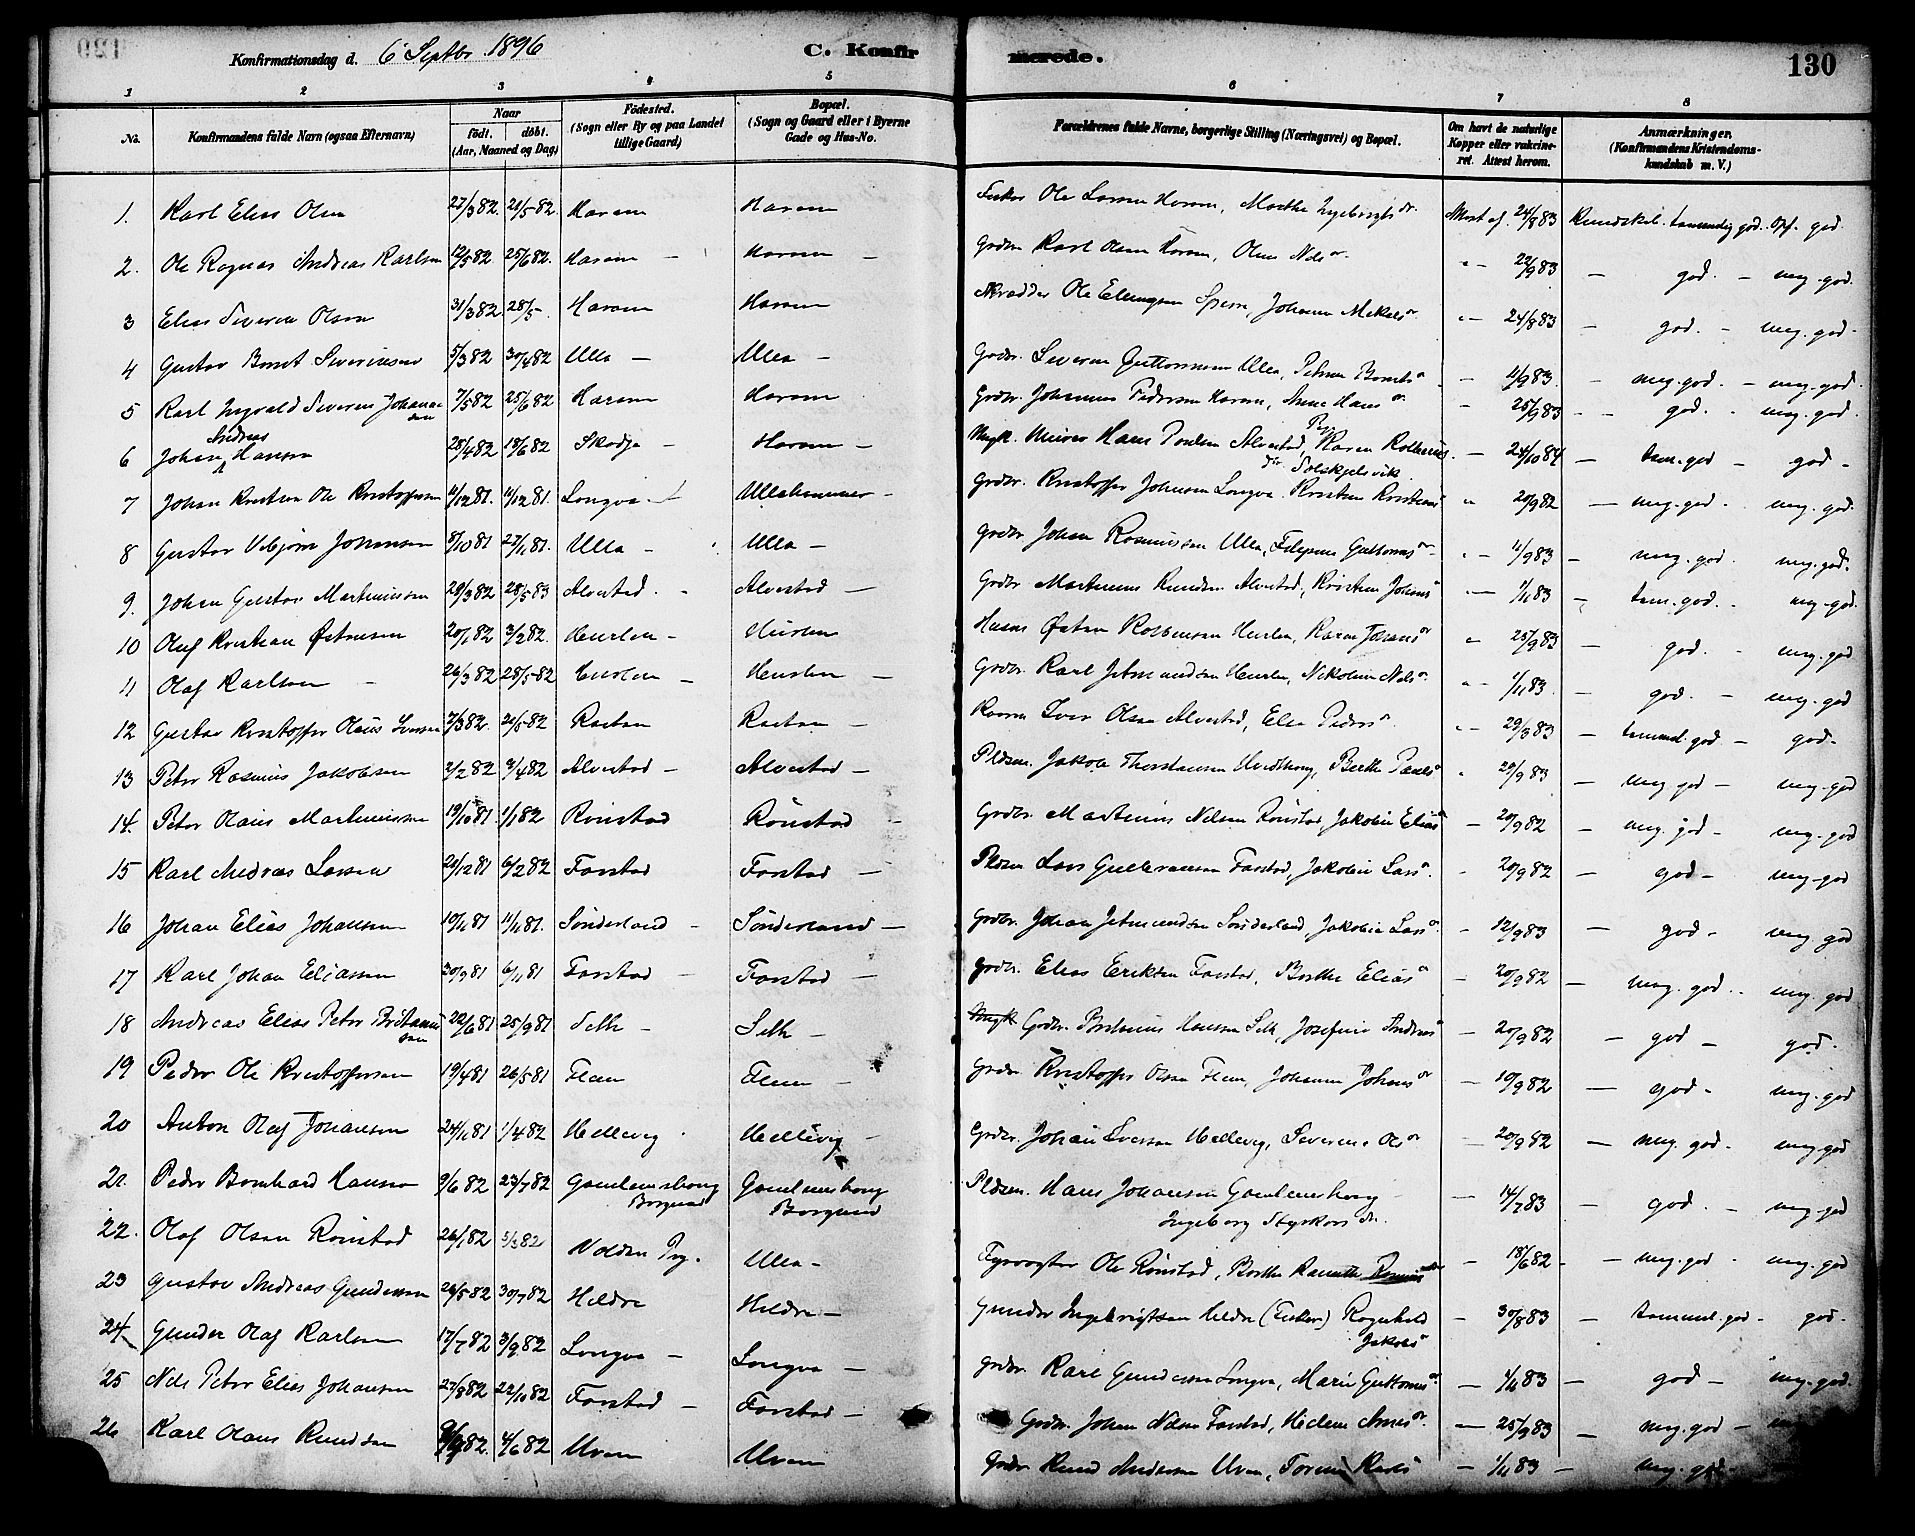 Konfirmationsdag d. 6 Septbr. 1896 C. Konfirmerede. 130
1 2 3 4 5 6 7 8
No. Konfirmandens fulde Navn (ogsaa Efternavn) Naar født. døbt. (Aar, Maaned og Dag) Fødested. (Sogn eller By og paa Landet tillige Gaard) Bopæl. (Sogn og Gaard eller i Byerne Gade og Hus-No. Forældrenes fulde Navne, borgerlige Stilling (Næringsvei) og Bopæl. Om havt de naturlige Kopper eller vakcineret. Attest herom. Anmærkninger. (Konfirmandens Kristendomskundskab m. V.)
1. Karl Elias Olsen 27/3 82. 21/5 82. Haram Haram Fisker Ole Larsen Haram, Marthe Ingebrigts dr. Attest af 24/8 83 Kundskab. temmelig god. Opf. god
2. Ole Ragnar Andreas Karlsen 12/5 82. 25/6 82. Haram Haram Grdbr. Karl Olsen Haram, Oline Nils dr. 22/9 83 god. meg. god.
3 Elias Severin Olsen 31/3 82 28/5 Haram Haram Skrædder Ole Ellingsen, Johanne Mikals dr. 24/8 83 god. meg. god
4 Gustav Bernt Severinsen 5/3 82 30/4 82 Ulla Ulla Grdbr. Severin Guttormsen Ulla, Petrine Bernts dr. 11/9 83. meg. god. meg. god
5 Karl Ingvald Severin Johansen 7/5 82 25/6 82 Haram Haram Grdbr. Johannes Pedersen Haram, Anne Hans dr. 25/9 83 god. meg. god.
6 Johan Andreas Hansen 28/4 82 18/6 82 Skodje Haram Ungk. Hans Poulsen Alvestad, Karen 24/10 84 tem. god god
7 Johan Kristian Ole Kristoffersen 4/12 81. 11/12 81. Longva Ullahammer Grdbr. Kristoffer Johnsen Longva. 20/9 82 meg. god. meg. god
8 Gustav Johansen 8/10 81 27/11 81. Ulla Ulla Grdbr Johan Rasmussen Ulla, Guttorms dr. 11/9 83 meg. god. meg. god.
9. Johan Gustav Martinussen 29/3 82 28/5 83 Alvestad. Alvestad Grdbr. Martinus Knudsen Alvestad, 1/11 83 tem. god. meg. god
10 Oluf Kristian Østensen 20/1 82 3/2 82. Hurlen Hurlen Husm Østen Hurlen, Karen Johans dr 25/9 83 god. meg. god
11 Olaf Karlsen 26/3 82 28/5 82 Hurlen Hurlen Grdbr. Karl Jetmundsen Hurlen, Nikoline Nils dr. 1/11 83. god. meg. god
12 Gustav Kristoffer Olaus Iversen 7/3 82. 21/5 82 Rastan Rastan Iver Olsen Alvestad, Else Peders dr 29/9 83 temmel. god god.
13 Peter Rasmus Jakobsen 2/2 82 9/4 82 Alvestad Alvestad Pldsm. Jakob Thorstensen, Berthe Pauls dr 29/9 83 meg god meg. god
14. Peter Olaus Martinussen 19/10 81 1/1 82 Rønstad Rønstad Grdbr. Martinus Nilsen Rønstad, Jakobine Elias dr 20/9 82 meg. god. meg. god
15 Karl Andreas Larsen 21/12 81 6/2 82 Farstad Farstad Pldsm Lars Gulbransen Farstad, Jakobine Lars dr. 20/9 82 god meg god
16 Johan Elias Johansen 10/11 81 11/11 81. Sønderland Sønderland Grdbr. Johan Jetmundsen Sønderland, Jakobine Lars dr. 12/9 83 god. meg god
17 Karl Johan Eliassen 30/9 81 6/11 81 Farstad Farstad Grdbr. Elias Eriksen Farstad, Berthe Elias dr 20/9 82 meg. god. meg. god
18 Andreas Elias Peter 22/6 81 25/9 81 Selh Selh Grdbr. Hansen Selh, Josefine Andreas dr 20/9 82 god god.
19 Peder Ole Kristoffersen 19/4 81 26/5 81 Flem Flem Grdbr Kristoffer Olsen Flem, Johanne Johans dr 10/9 82 god. meg. god
20 Anton Oluf Johansen 24/11 81 1/4 82 Hellevig Hellevig Grdbr. Johan Iversen Hellevig, Severine Ols dr 20/9 82 meg. god. meg. god
21. Peder Bernhard Hansen 9/6 82 23/7 82 Gamlemsborg Borgund Gamlemsborg Borgund Pldsm. Hans Johansen Gamlemsborg 14/7 83 god. meg. god
Ingeborg Styrkors dr.
22. Olaf Olsen Rønstad 26/1 82 5/3 82 Ulla Fyrvogter Ole Rønstad, Berthe 18/6 82 meg. god meg. god
23 Gustav Andreas Gundersen 26/5 82 30/7 82 Hildre Hildre Gunder Ingebrigtsen Hildre (Fisker) Ragnhild Jakobs dr 30/8 83 temmel. god god.
24 Gunder Olaf Karlsen 17/7 82 3/9 82 Longva Longva Grdbr. Karl Gundersen Longva, Marie Guttorms dr. 83 god meg. god.
25 Nils Peter Elias Johansen 27/8 82 22/10 82 Farstad Farstad Grdbr. Johan Nilsen Farstad, Helene 25/9 83 meg. god
26 Karl Olaus Knudsen 82. 4/6 82 Uren Uren Grdbr. Knud Andersen Uren, 1/11 83 meg. god